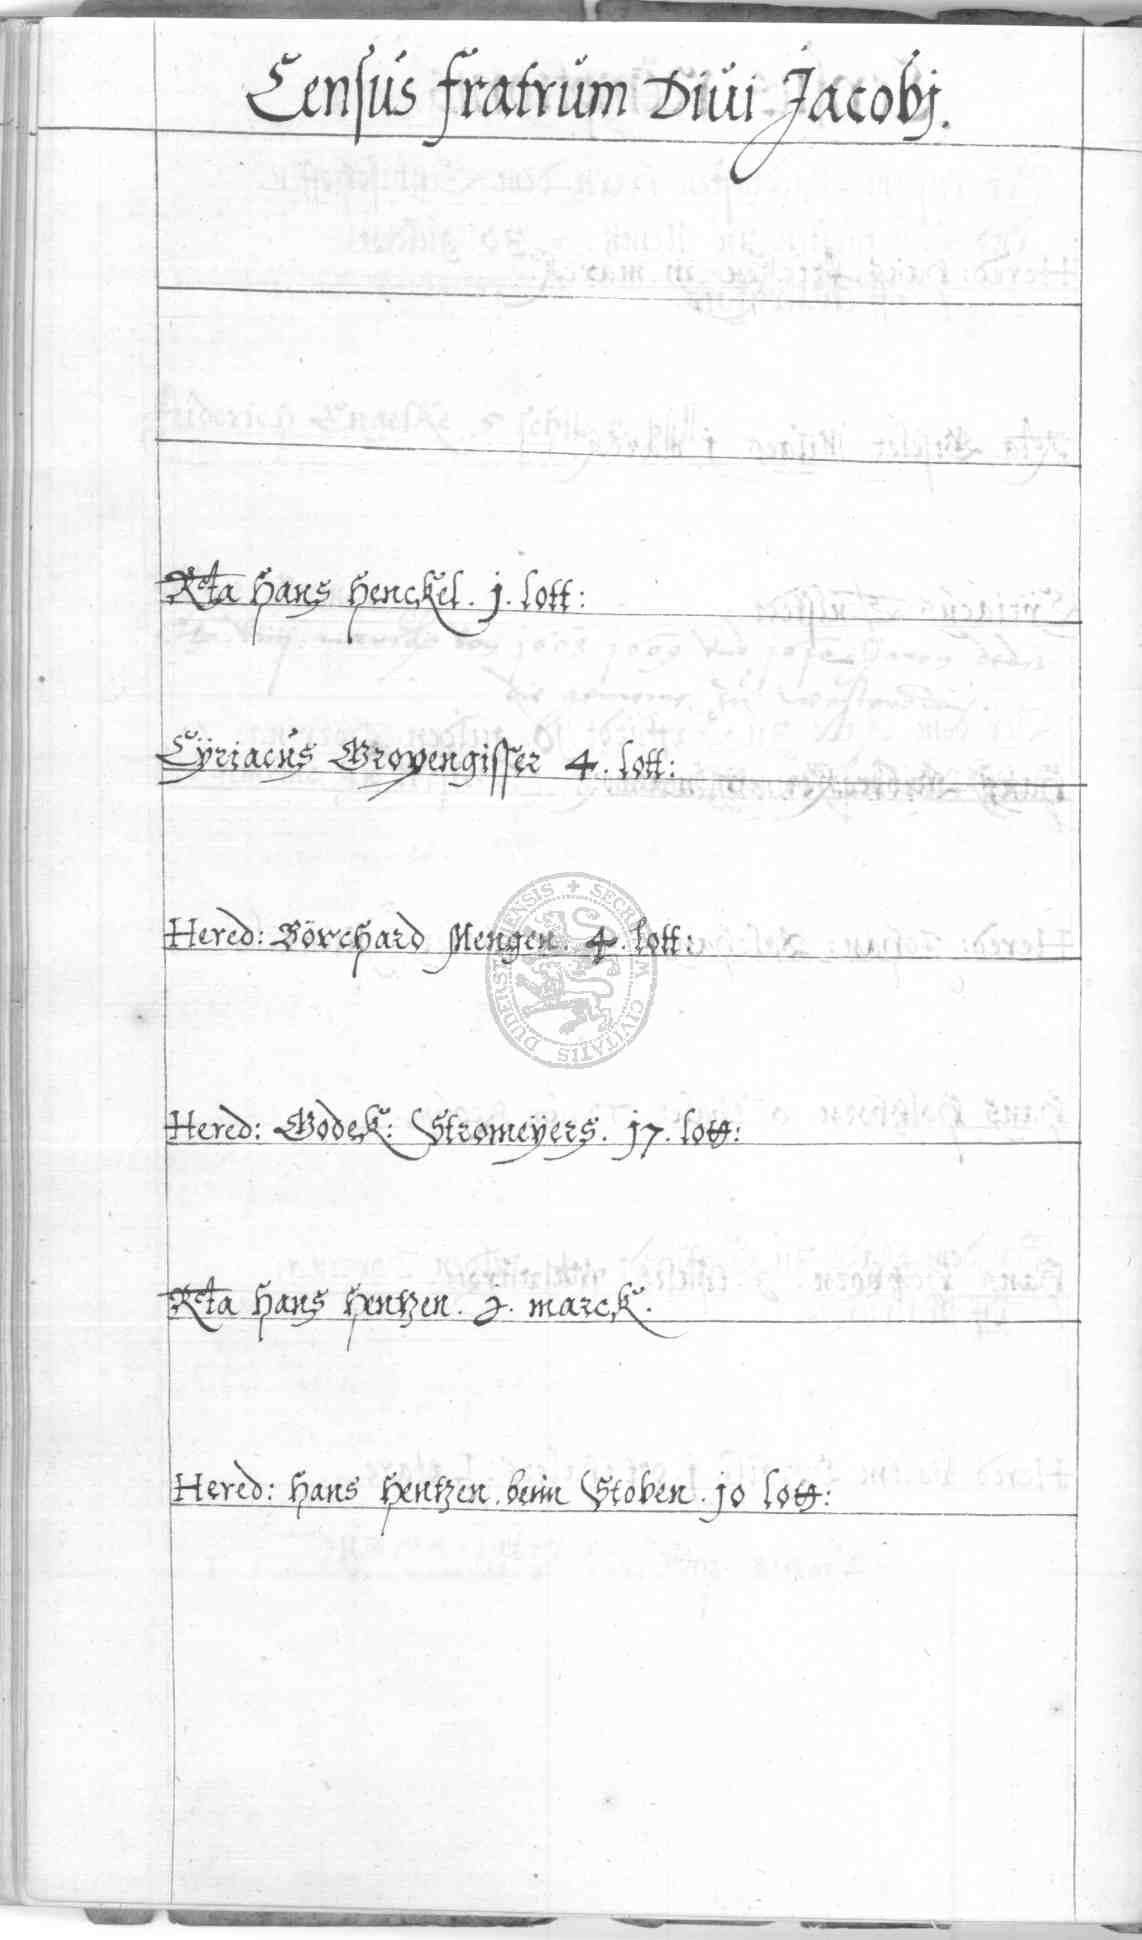 Census fratrum Diui Jacobj.
Rcta Hans Henckel. j. lott:
Cÿriacus Gropengisser 4. lott:
Hered: Börchard Mengen. 4. lott:
Hered: Godek: Stromeÿers. j7. lott:
Rcta Hans Hentzen. j. marck.
Hered: Hans Hentzen. beim Stoben. jo lott:
SECRETUM CIVITATIS DUDERSTADENSIS